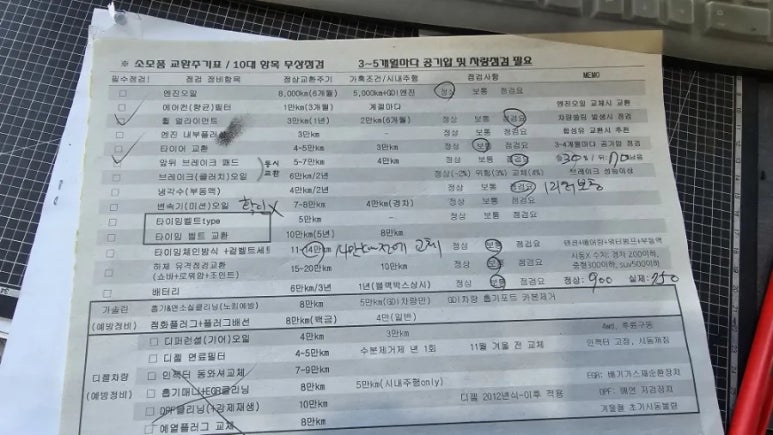 ※ 소모품 교환주기표 / 10대 항목 무상점검 3~5개월마다 공기압 및 차량점검 필요
필수점검! 점검 정비항목 정상교환주기 가혹조건/시내주행 점검사항 MEMO
□ 엔진오일 8,000km(6개월) 5,000km+GDI엔진 정상 보통 점검요
□ 에어컨(향균)필터 1만km(3개월) 계절마다 엔진오일 교체시 교환
□ 휠 얼라이먼트 3만km(1년) 2만km(6개월) 정상 보통 점검요 차량쏠림 발생시 점검
□ 엔진 내부플러싱 3만km 정상 보통 점검요 합성유 교환시 추천
□ 타이어 교환 4-5만km 3만km 정상 보통 점검요 3-4개월마다 공기압 점검
□ 앞뒤 브레이크 패드 동시 교환 5-7만km 4만km 정상 보통 점검요 30 70
□ 브레이크(클러치)오일 6만km/2년 정상(~2%) 위험(3%) 교체(4%) 브레이크 성능이상
□ 냉각수(부동액) 4만km/2년 정상 보통 점검요
□ 변속기(미션)오일 확인X 7-8만km 4만km(경차) 정상 보통 점검요
□ 타이밍벨트type 5만km 정상 보통 점검요
□ 타이밍 벨트 교환 10만km(5년) 8만km
□ 타이밍체인방식 +겉벨트세트 11-14만km 교체 정상 보통 점검요 텐션+베어링+워터펌프+부동액
□ 하체 유격점검교환 (쇼바+로워암+조인트) 15-20만km 10만km 정상 보통 점검요 시동X 수치: 경차 200이하, 중형300이하, suv500이하
□ 배터리 6만km/3년 1년(블랙박스상시) 정상 보통 점검요 정상: 900 실제: 750
가솔린 (예방정비) 흡기&연소실클리닝(노킹예방) 8만km 5만km(GDI차량만) GDI차량 흡기포트 카본제거
점화플러그+플러그배선 8만km(백금) 4만(일반)
디젤차량 (예방정비) □ 디퍼런셜(기어)오일 4만km 3만km 4wd, 후륜구동
□ 디젤 연료필터 4-5만km 수분제거제 년 1회 11월 겨울 전 교체 인젝터 고장, 시동꺼짐
□ 인젝터 동와셔교체 7-9만km
□ 흡기매니+EGR클리닝 8만km 5만km(시내주행only) EGR: 배기가스재순환장치
□ DPF클리닝(+강제재생) 10만km 디젤 2012년식~이후 적용 DPF: 매연 저감장치
□ 예열플러그 교체 8만km 겨울철 초기시동불량